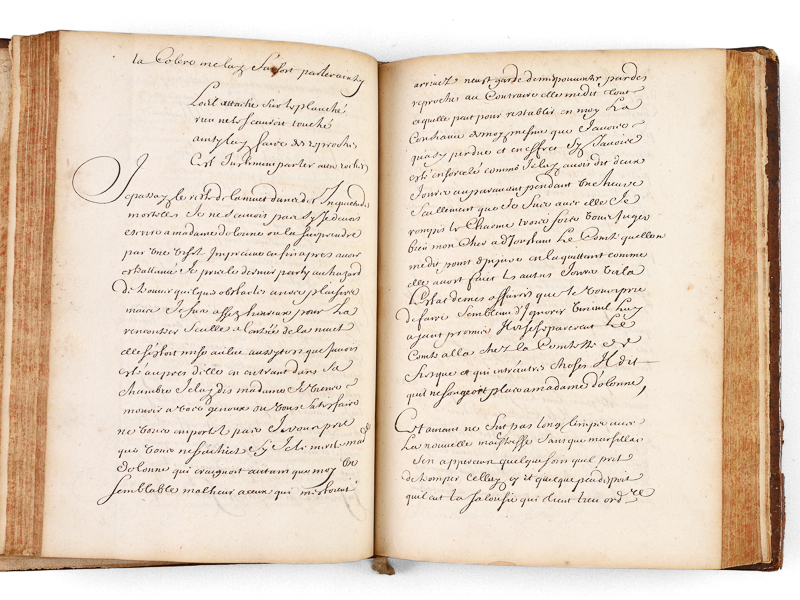 la Colere me luy fit fort parler ainsy
Loeil attaché sur le planché
rien ne le scauroit touché
amy luy faire des reproches
C'est Justement parler aux roches
Je passay le reste de la nuict dans des Inquietudes
mortelles Je ne scavois pas sy Je devois
escrire a madame dolonne ou la surprendre
par une visite Impreveue enfin apres avoir
 Je pris le dernier party au hazard
de trouver quelque obstacles a nos plaisirs
mais Je fus assez heureux pour la
rencontrer seulle a l'entrée de la nuict
elle sestoit mise au lict aussytost que Javois
esté aupres d'elle en entrant dans sa
chambre Je luy dis madame Je viens
mourir a vos genoux ou vous satisfaire
ne vous emportez pas Je vous prie
que vous ne scachiez sy Je le merite mad.e
dolonne qui craignoit autant que moy un
semblable malheur a ceux qui mestoient
arrivez neust garde de mespouventer par des
reproches au Contraire elle me dit tout
ce quelle put pour restablir en moy La
Confiance de moy mesme que Javois
quasy perdue et en effect sy Javois
esté ensorcelé comme Je luy avois dit deux
Jours auparavant pendant une heure
seullement que Je fus avec elle Je
rompis le charme vous pouvez Juger
bien mon Cher a dJoustant Le Comte quelle ne
me dit point d'injure en la quittant comme
elle avoit faict les autres Jours voila
Lestat de mes affaires que Je vous prie
de faire semblant d'ignorer vineuil luy
ayant promis Ils se separerent Le
Comte alla chez la Comtesse de
fiesque et qui entre autres choses Il dit
quil ne songeoit plus a madame dolonne,
Cet amant ne fut pas long temps avec
La nouvelle maistresse sans que marsillac
s'en apperceut quelque soin quel prit
de tromper celluy cy et quelque peu desprit
quil eut la Jalousie qui tient lieu ord.re